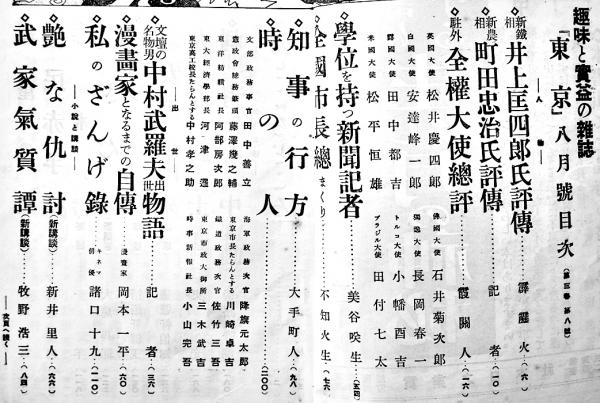 趣味と實益の雜誌
『東京』八月號目次（第三卷第八號）
――人物――
新鐵相 井上匡四郎氏評傳……霹靂火（六）
新農相 町田忠治氏評傳……記者（一〇）
駐外 全權大使總評……霞關人（一六）
英國大使 松井慶四郎 佛國大使 石井菊次郎
白國大使 安達峰一郎 獨逸大使 長岡春一
露國大使 田中都吉 トルコ大使 小幡酉吉
米國大使 松平恒雄 ブラジル大使 田付七太
◇學位を持つ新聞記者……美谷咲生（五四）
◇全國市長總まくり……不知火生（七六）
◇知事の行方……大手町人（九八）
◇時の人……（一〇〇）
文部政務次官 田中善立 海軍政務次官 降旗元太郎
憲政會總務筆頭 藤澤幾之輔 東京市長たらんとする 川崎卓吉
東洋紡織社長 阿部房次郎 鐵道政務次官 佐竹三吾
東大經濟學部長 河津暹 東京市政大御所 三木武吉
東京高工校長たらんとする 中村幸之助 時事新報社長 小山完吾
――出世――
◇文壇の名物男 中村武羅夫出世物語……記者（三六）
◇漫畫家となるまでの自傳……漫畫家 岡本一平（六〇）
◇私のざんげ錄……キネマ俳優 諸口十九（一一〇）
――小說と講談――
◇艶な仇討（新講談）……新井里人（六六）
◇武家氣質譚（新講談）……牧野浩三（八四）
――次頁へ續く――